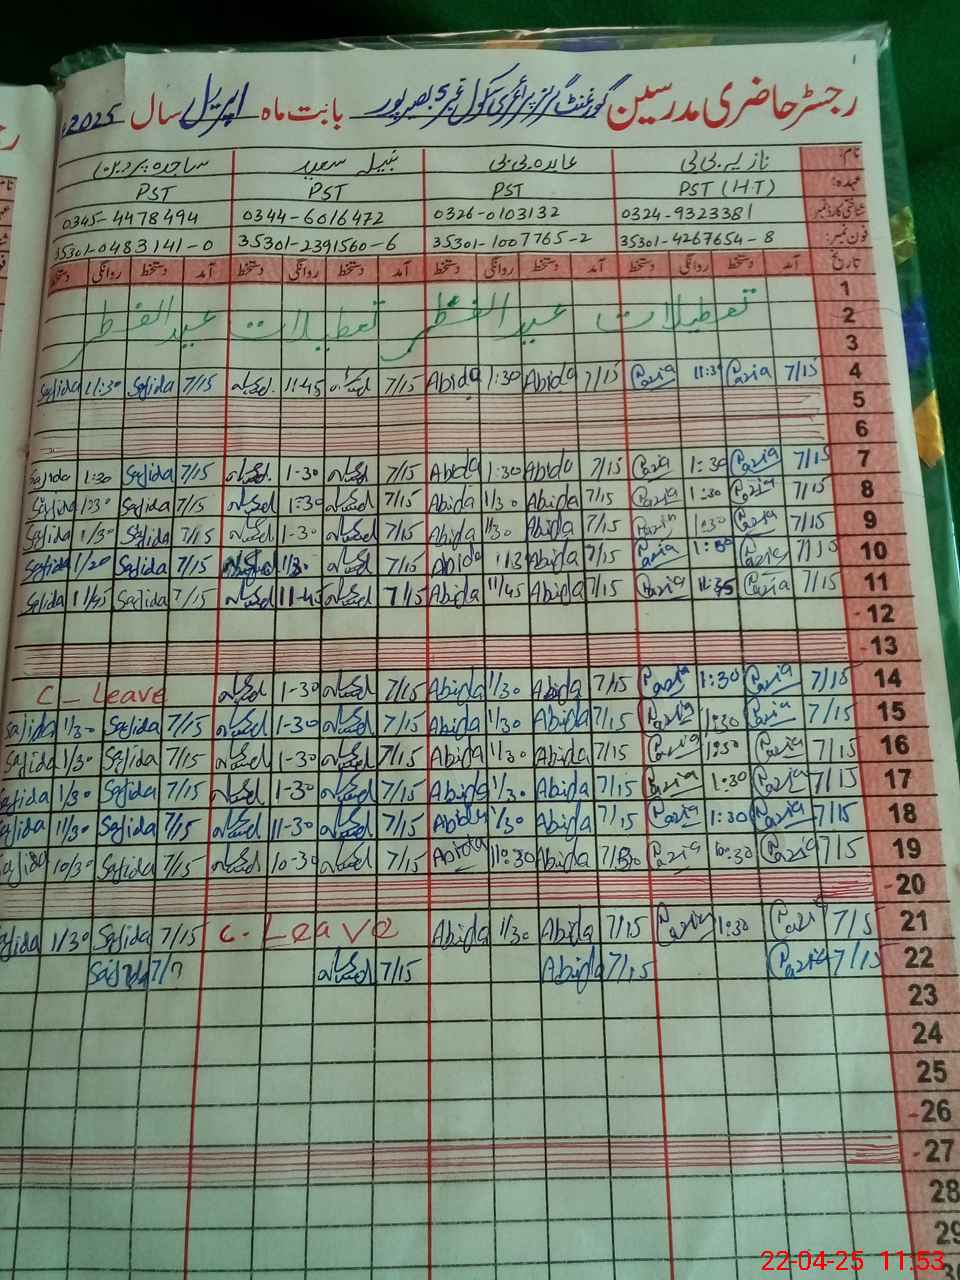 رجسٹر حاضری مدرسین گورنمنٹ گرلز پرائمری سکول غربی بصیرپور بابت ماہ اپریل سال 2025
نام: نازیہ بی بی عابدہ بی بی نبیلہ سعید ساجدہ پروین
عہدہ: PST (H.T) PST PST PST
شناختی کارڈ نمبر 0324-9323381 0326-0103132 0344-6016472 0345-4478494
فون نمبر: 35301-4267654-8 35301-1007765-2 35301-2391560-6 35301-0483141-0
تاریخ آمد دستخط روانگی دستخط آمد دستخط روانگی دستخط آمد دستخط روانگی دستخط آمد دستخط روانگی دستخط
1
2 تعطیلات عید الفطر تعطیلات عید الفطر
3
4 7/15 Pazia Pazia 7/15 Abida 1:30 Abida 7/15 11-45 7/15 Sajida 11:30 Sajida
5
6
7 7/15 Pazia 1:30 Pazia 7/15 Abida 1:30 Abida 7/15 1-30 7/15 Sajida 1:30 Sajida
8 7/15 Pazia 1:30 Pazia 7/15 Abida 1/30 Abida 7/15 1:30 7/15 Sajida 1:30 Sajida
9 7/15 Pazia 1:30 Pazia 7/15 Abida 1/30 Abida 7/15 1-30 7/15 Sajida 1/30 Sajida
10 7/15 Pazia 1:30 Pazia 7/15 Abida Abida 7/15 1/30 7/15 Sajida 1/20 Sajida
11 7/15 Pazia 11:35 Pazia 7/15 Abida 11/45 Abida 7/15 11-45 7/15 Sajida 11/45 Sajida
-12
-13
14 7/15 Pazia 1:30 Pazia 7/15 Abida 1/30 Abida 7/15 1-30 C - Leave
15 7/15 Pazia 1:30 Pazia 7/15 Abida 1/30 Abida 7/15 1-30 7/15 Sajida 1/30 Sajida
16 7/15 Pazia Pazia 7/15 Abida 1/30 Abida 7/15 1-30 7/15 Sajida 1/30 Sajida
17 7/15 Pazia 1:30 Pazia 7/15 Abida 1/30 Abida 7/15 1-30 7/15 Sajida 1/30 Sajida
18 7/15 Pazia 1:30 Pazia 7/15 Abida 1/30 Abida 7/15 11-30 7/15 Sajida 11/30 Sajida
19 7/15 Pazia 10:30 Pazia Abida 11:30 Abida 7/15 10-30 7/15 Sajida 10/30 Sajida
-20
21 7/15 Pazia 1:30 Pazia 7/15 Abida 1/30 Abida C. Leave 7/15 Sajida 1/30 Sajida
22 7/15 Pazia 7/15 Abida 7/15 Sajida
23
24
25
-26
-27
28
29
22-04-25 11:53